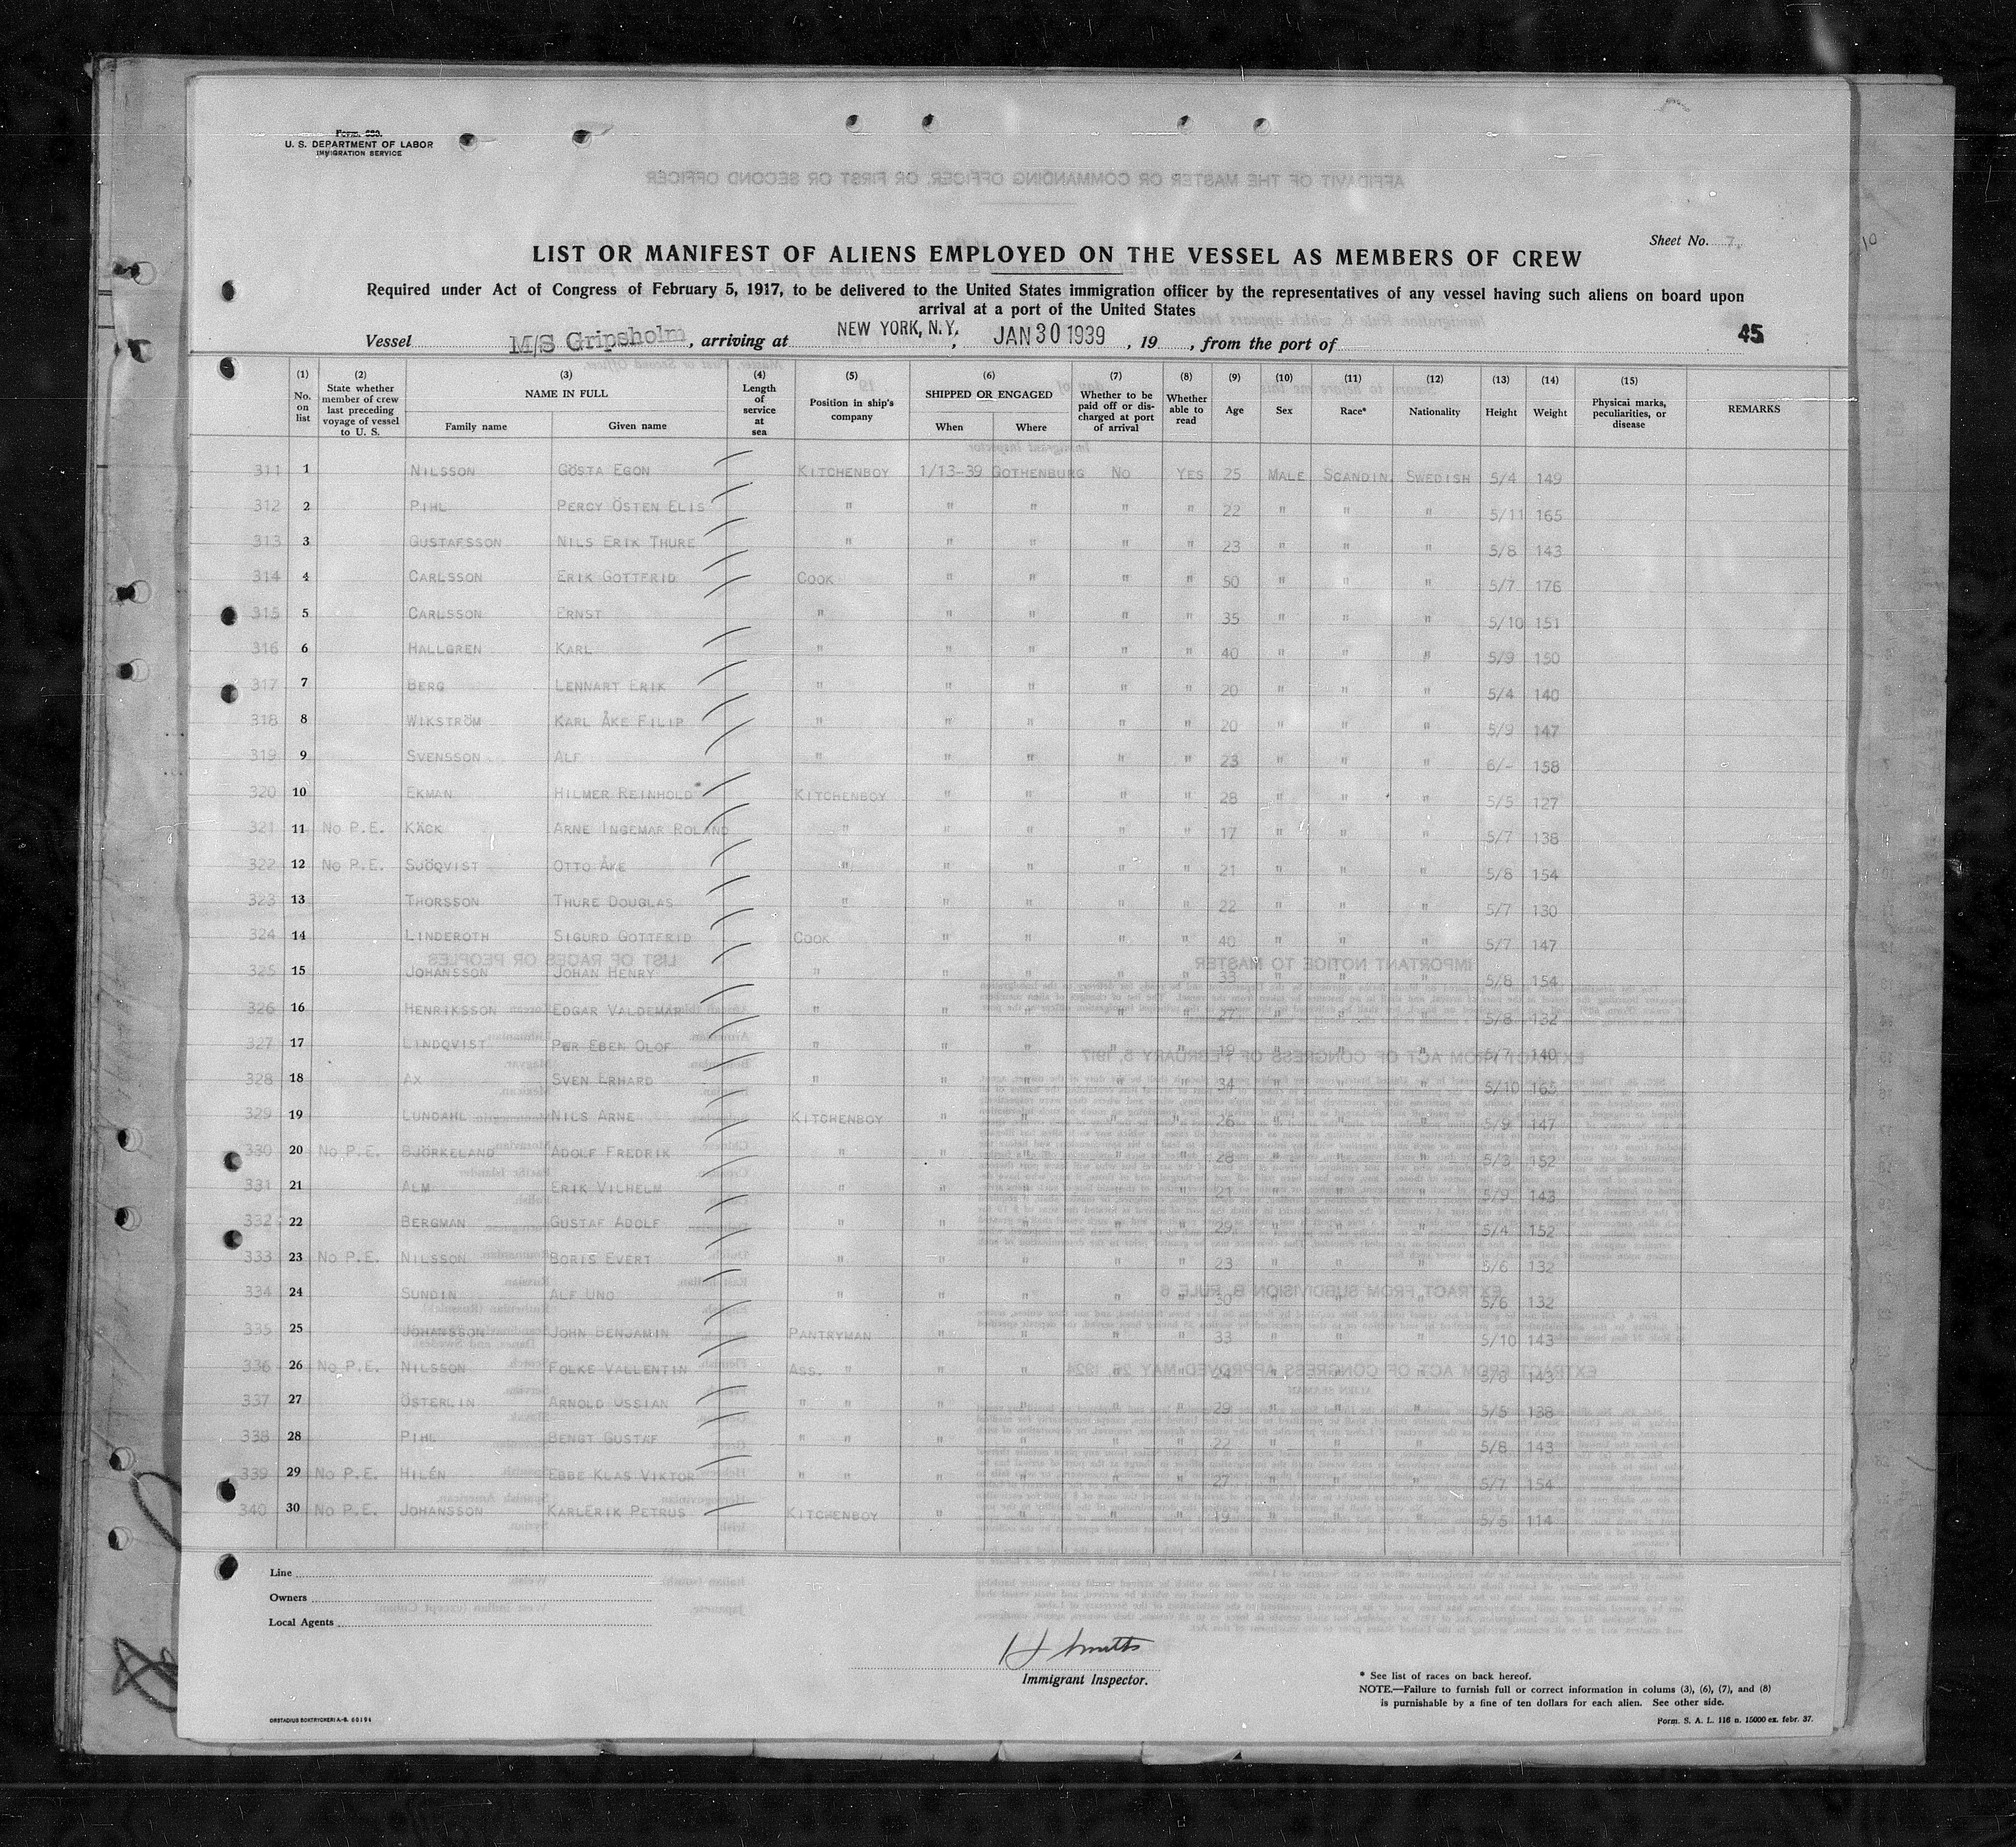 Form. 680.
U. S. DEPARTMENT OF LABOR
IMMIGRATION SERVICE
Sheet No. 7.
LIST OR MANIFEST OF ALIENS EMPLOYED ON THE VESSEL AS MEMBERS OF CREW
Required under Act of Congress of February 5, 1917, to be delivered to the United States immigration officer by the representatives of any vessel having such aliens on board upon
arrival at a port of the United States
Vessel M/S Gripsholm, arriving at NEW YORK, N.Y., JAN 30 1939, 19 , from the port of 45
(1) No. on list (2) State whether member of crew last preceding voyage of vessel to U. S. (3) NAME IN FULL Family name Given name (4) Length of service at sea (5) Position in ship's company (6) SHIPPED OR ENGAGED When Where (7) Whether to be paid off or discharged at port of arrival (8) Whether able to read (9) Age (10) Sex (11) Race* (12) Nationality (13) Height (14) Weight (15) Physical marks, peculiarities, or disease REMARKS
311 1 NILSSON GÖSTA EGON KITCHENBOY 1/13-39 GOTHENBURG NO YES 25 MALE SCANDIN. SWEDISH 5/4 149
312 2 PIHL PERCY ÖSTEN ELIS " " " " " 22 " " " 5/11 165
313 3 GUSTAFSSON NILS ERIK THURE " " " " " 23 " " " 5/8 143
314 4 CARLSSON ERIK GOTTFRID COOK " " " " 50 " " " 5/7 176
315 5 CARLSSON ERNST " " " " " 35 " " " 5/10 151
316 6 HALLGREN KARL " " " " " 40 " " " 5/9 150
317 7 BERG LENNART ERIK " " " " " 20 " " " 5/4 140
318 8 WIKSTRÖM KARL ÅKE FILIP " " " " " 20 " " " 5/9 147
319 9 SVENSSON ALF " " " " " 23 " " " 6/- 158
320 10 EKMAN HILMER REINHOLD KITCHENBOY " " " " 28 " " " 5/5 127
321 11 NO P.E. KÄCK ARNE INGEMAR ROLAND " " " " " 17 " " " 5/7 138
322 12 NO P.E. SJÖQVIST OTTO ÅKE " " " " " 21 " " " 5/8 154
323 13 THORSSON THURE DOUGLAS " " " " " 22 " " " 5/7 130
324 14 LINDEROTH SIGURD GOTTFRID COOK " " " " 40 " " " 5/7 147
325 15 JOHANSSON JOHAN HENRY " " " " " 33 " " " 5/8 154
326 16 HENRIKSSON EDGAR VALDEMAR " " " " " 27 " " " 5/8 132
327 17 LINDQVIST PER EBEN OLOF " " " " " 19 " " " 5/7 140
328 18 AX SVEN ERHARD " " " " " 34 " " " 5/10 165
329 19 LUNDAHL NILS ARNE KITCHENBOY " " " " 26 " " " 5/9 147
330 20 NO P.E. BJÖRKELAND ADOLF FREDRIK " " " " " 28 " " " 5/3 152
331 21 ALM ERIK VILHELM " " " " " 21 " " " 5/9 143
332 22 BERGMAN GUSTAF ADOLF " " " " " 29 " " " 5/4 152
333 23 NO P.E. NILSSON BORIS EVERT " " " " " 23 " " " 5/6 132
334 24 SUNDIN ALF UNO " " " " " 30 " " " 5/6 132
335 25 JOHANSSON JOHN BENJAMIN PANTRYMAN " " " " 33 " " " 5/10 143
336 26 NO P.E. NILSSON FOLKE VALLENTIN ASS. " " " " " 24 " " " 5/8 143
337 27 ÖSTERLIN ARNOLD OSSIAN " " " " " " 29 " " " 5/5 138
338 28 PIHL BENGT GUSTAF " " " " " " 22 " " " 5/8 143
339 29 NO P.E. HILÉN EBBE KLAS VIKTOR " " " " " " 27 " " " 5/7 154
340 30 NO P.E. JOHANSSON KARLERIK PETRUS KITCHENBOY " " " " 19 " " " 5/5 114
Line
Owners
Local Agents
Immigrant Inspector.
* See list of races on back hereof.
NOTE.—Failure to furnish full or correct information in colums (3), (6), (7), and (8)
is punishable by a fine of ten dollars for each alien. See other side.
ORSTADIUS BOKTRYCKERI A.-B. 60194
Form. S. A. L. 116 n. 15000 ex. febr. 37.